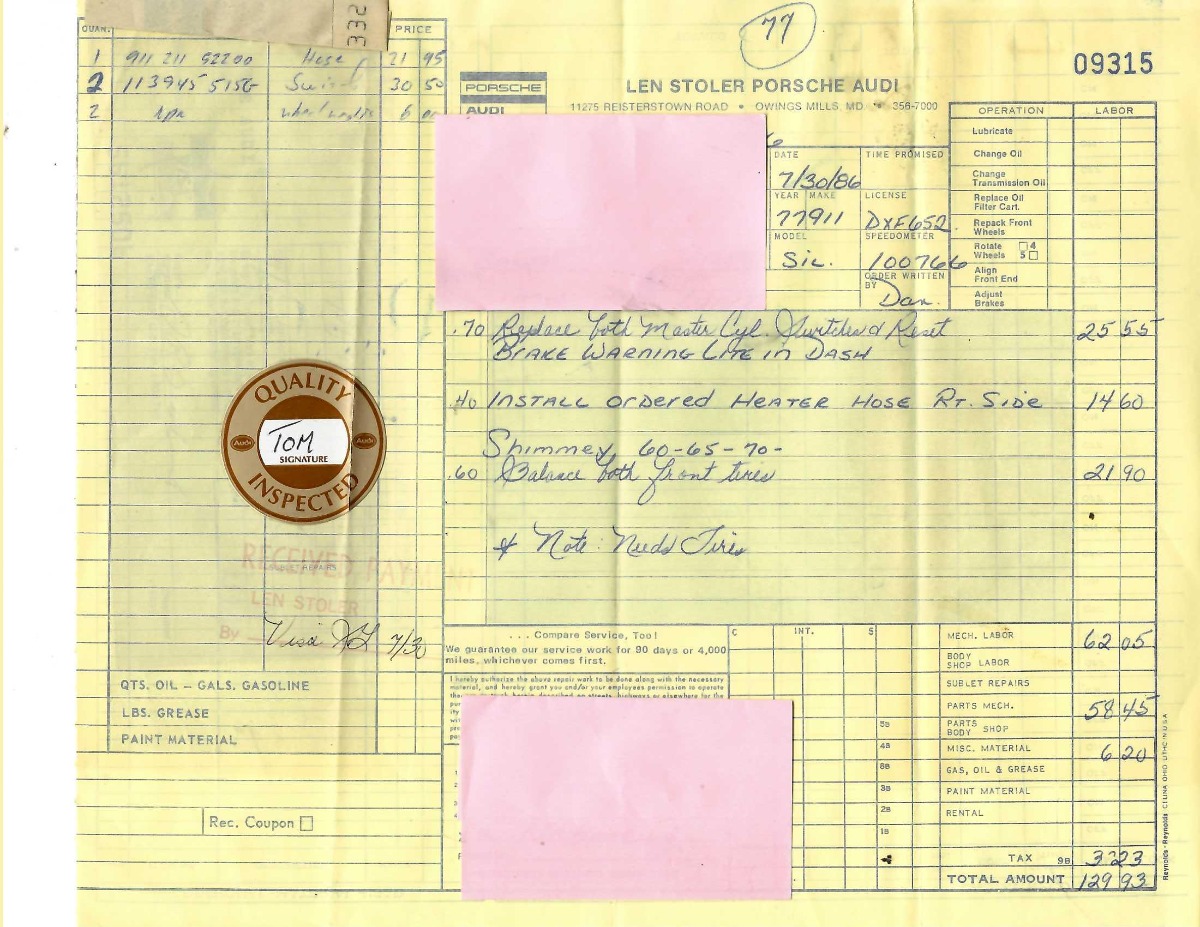 77
09315
332
QUAN. PRICE
1 911 211 52200 Hose 21 95
2 113945 515G 30 50
2 6 00
PORSCHE
AUDI
LEN STOLER PORSCHE AUDI
11275 REISTERSTOWN ROAD • OWINGS MILLS, MD. • 356-7000
DATE TIME PROMISED
7/30/86
YEAR MAKE LICENSE
77911 DXF652
MODEL SPEEDOMETER
Sil. 100766
ORDER WRITTEN BY
Dan.
OPERATION LABOR
Lubricate
Change Oil
Change Transmission Oil
Replace Oil Filter Cart.
Repack Front Wheels
Rotate Wheels 4 5
Align Front End
Adjust Brakes
.70 Replace both Master Cyl. Switches & Reset 25 55
BRAKE WARNING LITE IN DASH
.40 INSTALL ORDERED HEATER HOSE RT. SIDE 14 60
Shimmey, 60-65-70-
.60 Balance both front tires 21 90
* Note: Needs Tires
QUALITY
Audi TOM Audi
SIGNATURE
INSPECTED
RECEIVED PAYMENT
REPAIRS
LEN STOLER
By Visa 7/30
QTS. OIL – GALS. GASOLINE
LBS. GREASE
PAINT MATERIAL
Rec. Coupon
. . . Compare Service, Too!
We guarantee our service work for 90 days or 4,000
miles, whichever comes first.
I hereby authorize the above repair work to be done along with the necessary
material, and hereby grant you and/or your employees permission to operate
C INT. S
5B
4B
8B
3B
2B
1B
MECH. LABOR 62 05
BODY SHOP LABOR
SUBLET REPAIRS
PARTS MECH. 58 45
PARTS BODY SHOP
MISC. MATERIAL 6 20
GAS, OIL & GREASE
PAINT MATERIAL
RENTAL
TAX 9B 3 23
TOTAL AMOUNT 129 93
Reynolds + Reynolds CELINA OHIO LITHO IN USA